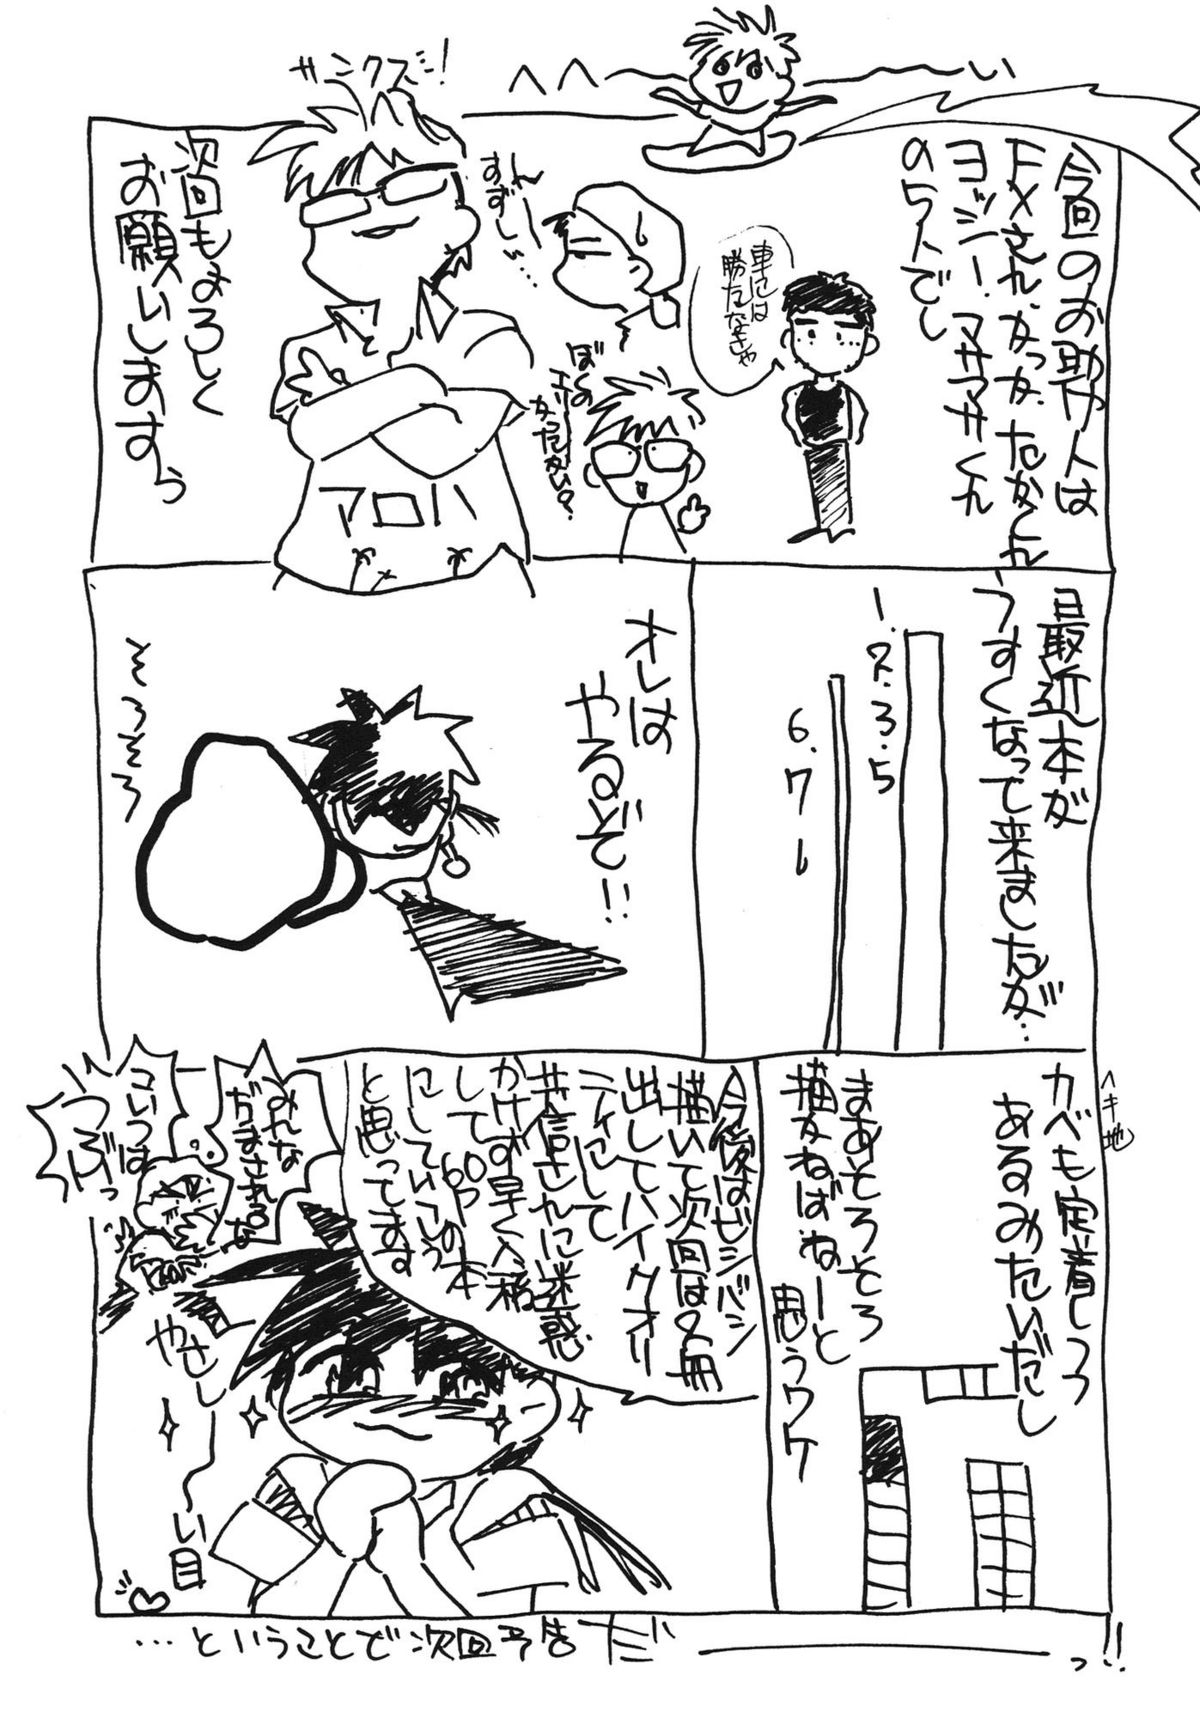 へへ〜い
今回のお助け人は
FXさん、なっか、たかくん
ヨッシー、マサマサくん
の5人でし
車には
勝たなきゃ
んー
すずし…
ぼくの
エリーなか
サンクス!
アロハ
次回もよろしく
お願いしますら
最近本が
うすくなって来ましたが…
1.2.3.5
6.7
オレは
やるぞ!!
そろそろ
カベも定着しつつ
あるみたいだし
ヘキ地
まあそろそろ
描かねばねーと
思うワケ
今後はビシバシ
描いて次回は2冊
出してハイクオリ
ティにして
共信さんに迷惑
かけず早く入稿
して60Pの本
にしていこう
と思ってます
みんな
だまされるな
コイツは
つぶっ
やさし〜い目
…ということで次回予告だ――っ!!